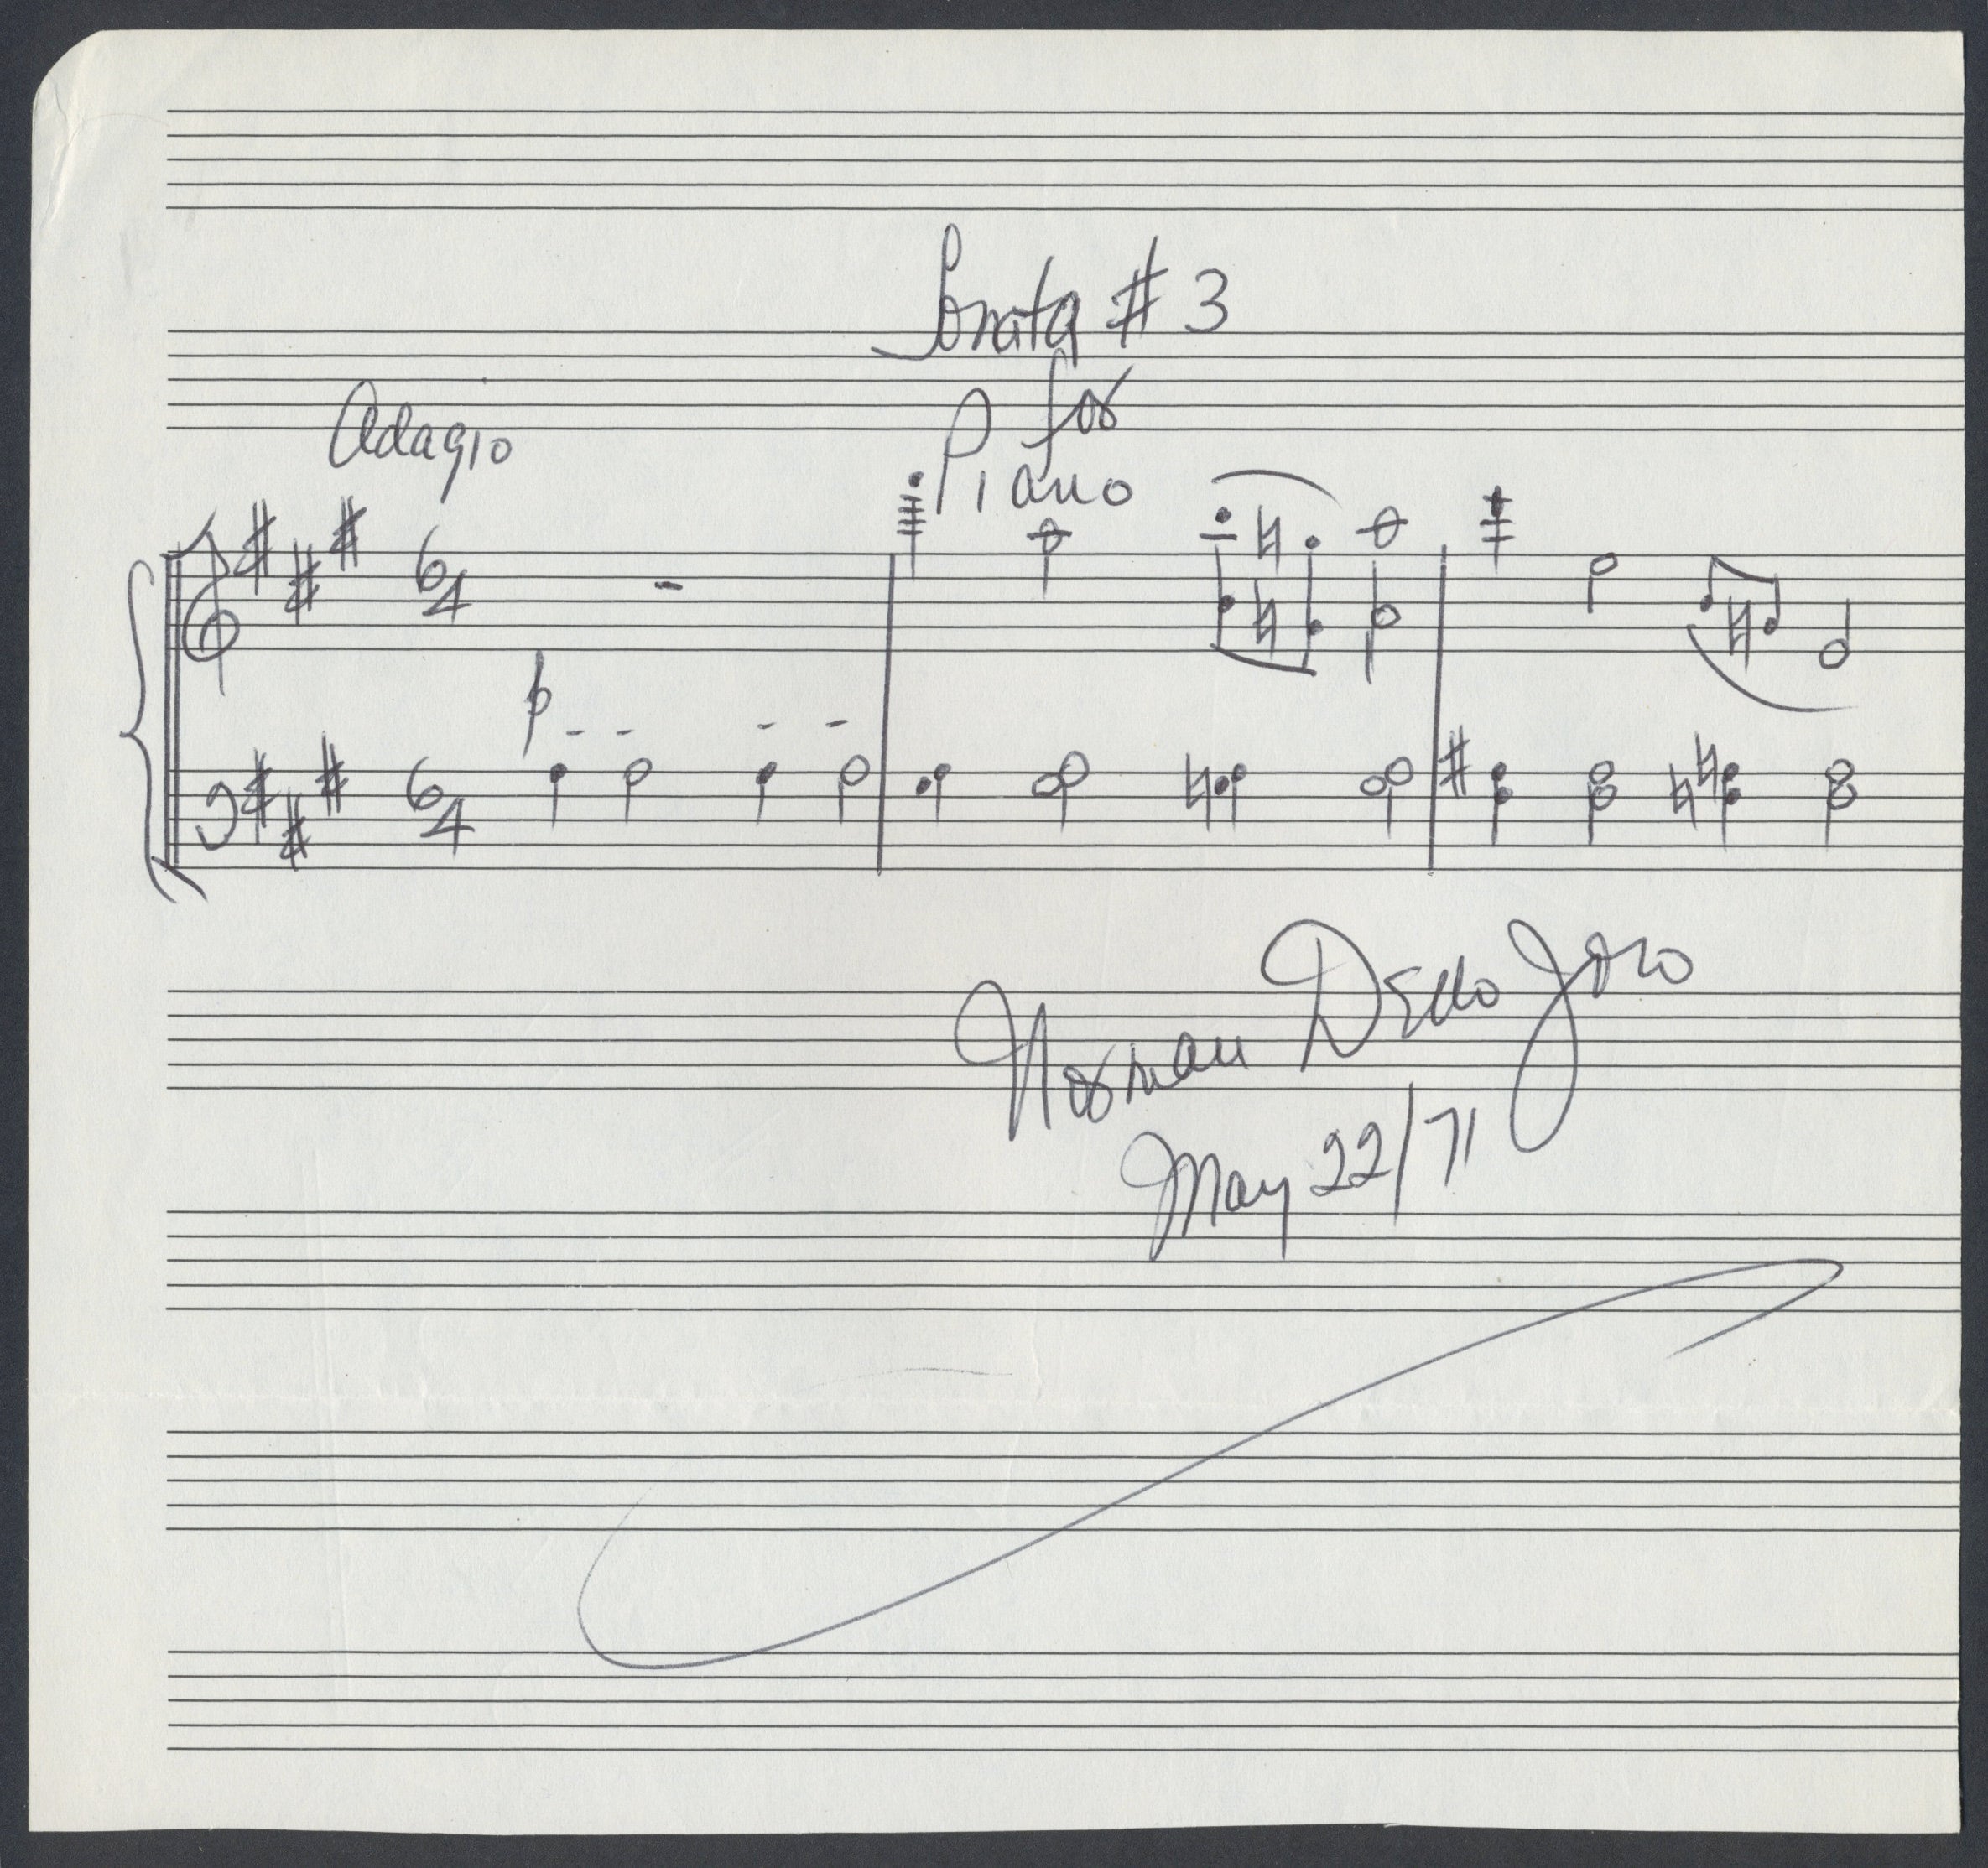 Sonata # 3
for
Piano
Adagio
6/4
p
6/4
Norman Dello Joio
May 22/71